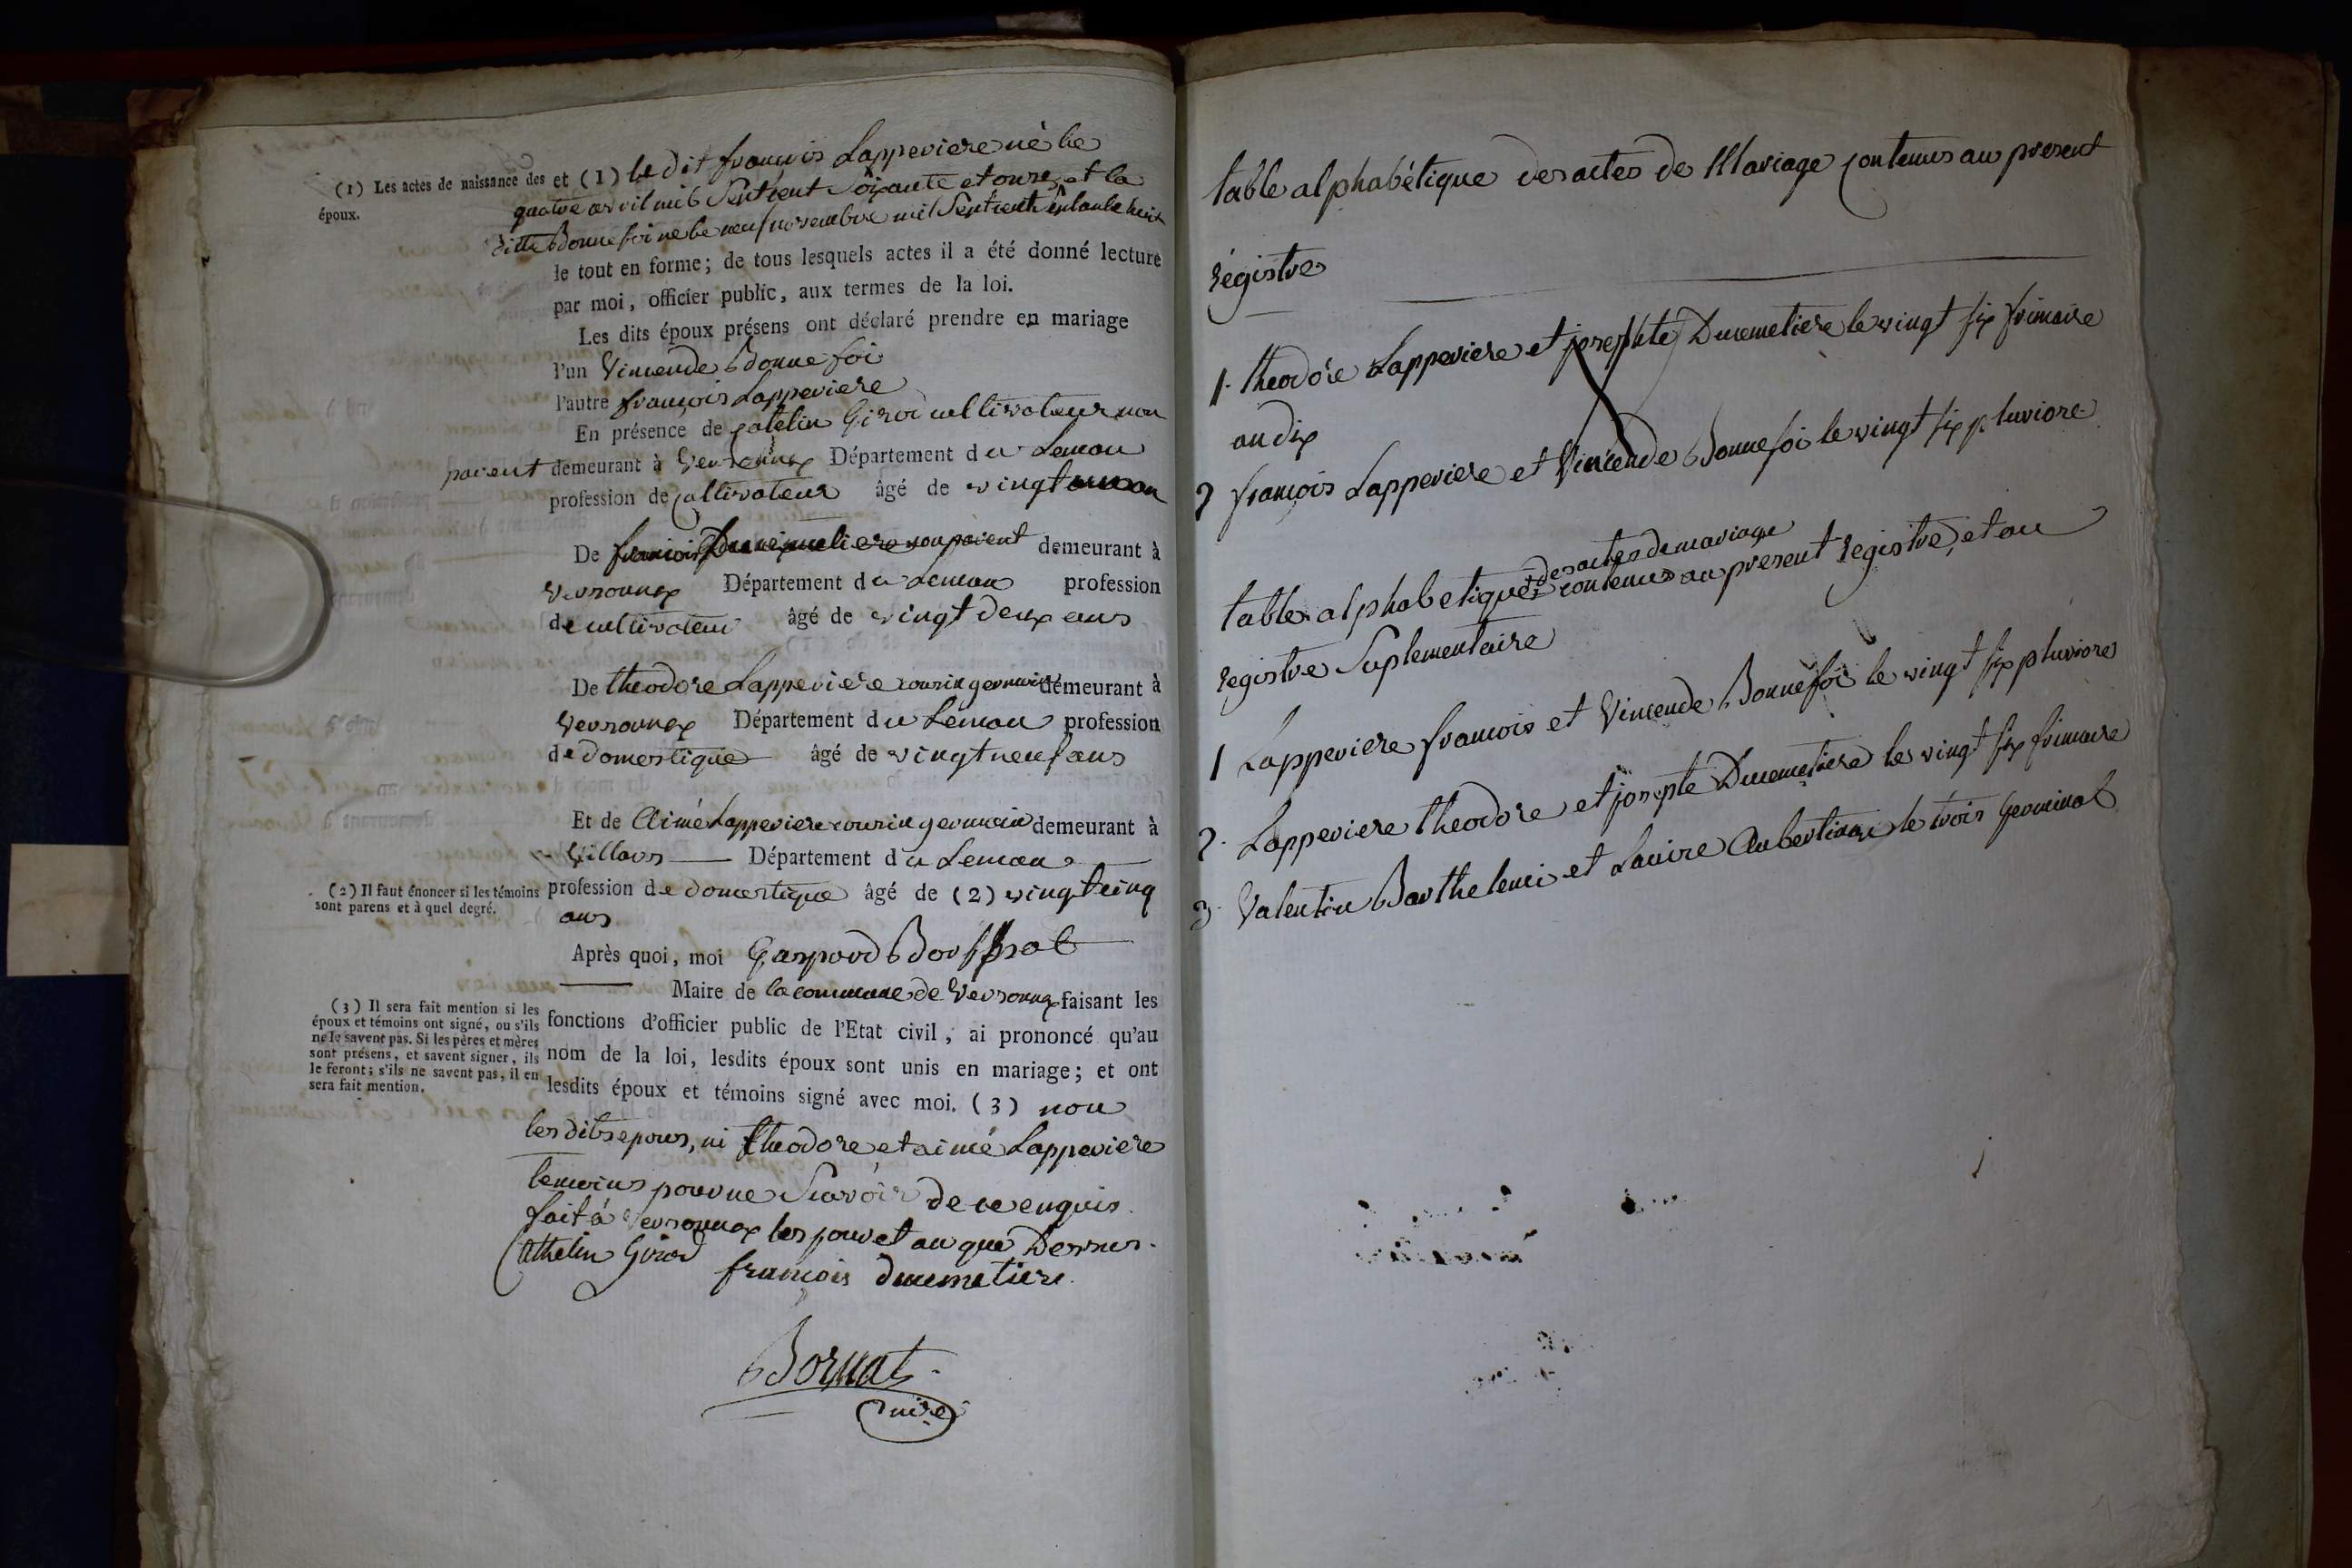 (1) Les actes de naissance des
époux.
et (1) le dit francois Lapperiere né le
quatre avril mil Sept cent soixante et onze, et la
ditte Bonnefoi née le neuf novembre mil Sept cent
le tout en forme; de tous lesquels actes il a été donné lecture
par moi, officier public, aux termes de la loi.
Les dits époux présens ont déclaré prendre en mariage
l'un Vincende Bonnefoi
l'autre françois Lapperiere
En présence de catelin Girod cultivateur non
parent demeurant à Versonnex Département du Leman
profession de cultivateur âgé de vingt
De francois Ducimetiere non parent demeurant à
Versonnex Département du Leman profession
de cultivateur âgé de vingt deux ans
De theodore Lapperiere cousin germain demeurant à
Versonnex Département du Léman profession
de domestique âgé de vingt neuf ans
Et de Aimé Lapperiere cousin germain demeurant à
Villars Département du Leman
(2) Il faut énoncer si les témoins
sont parens et à quel degré.
profession de domestique âgé de (2) vingt cinq
ans
Après quoi, moi Gaspard
Maire de la commune de Versonnex faisant les
(3) Il sera fait mention si les
époux et témoins ont signé, ou s'ils
ne le savent pas. Si les pères et mères
sont présens, et savent signer, ils
le feront; s'ils ne savent pas, il en
sera fait mention.
fonctions d'officier public de l'Etat civil, ai prononcé qu'au
nom de la loi, lesdits époux sont unis en mariage; et ont
lesdits époux et témoins signé avec moi. (3) non
les dits epoux, ni theodore et aimé Lapperiere
temoins pour ne Scavoir de ce enquis
fait à Versonnex les jour et an que Dessus.
Cathelin Girod
francois ducimetiere
maire
table alphabétique des actes de Mariage contenus au present
régistre
1. theodore Lapperiere et josephte Ducimetiere le vingt six frimaire
an dix
2 françois Lapperiere et Vincende Bonnefoi le vingt six pluviose
des actes de mariage
table alphabetique contenus au present registre, et au
registre Suplementaire
1 Lapperiere francois et Vincende Bonnefoi le vingt six pluviose
2. Lapperiere theodore et josepte Ducimetiere le vingt six frimaire
3. Valentin Barthelemi et le trois Germinal